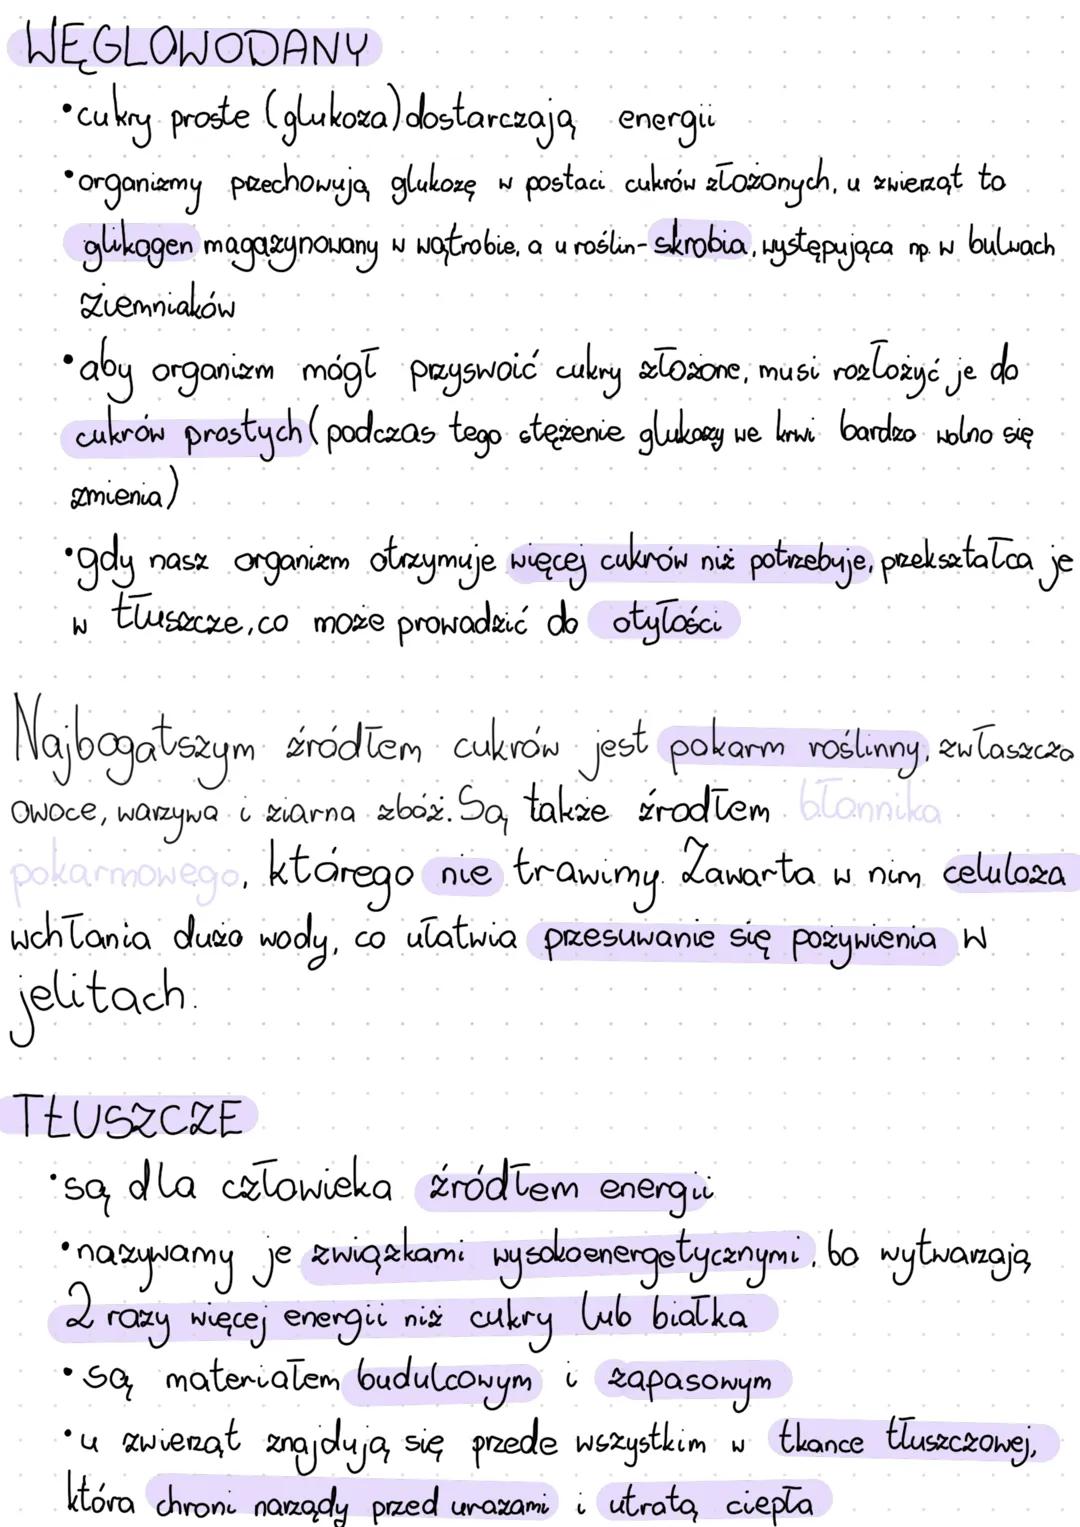 WĘGLOWODANY
•cukry proste (glukoza) dostarczają energii
•organizmy przechowują glukozę w postaci cukrów złożonych, u zwierząt to
glikogen magazynowany w wątrobie, a u roślin- skrobia, występująca np. w bulwach
ziemniaków
•aby organizm mógł przyswoić cukry złożone, musi rozłożyć je do
cukrów prostych (podczas tego stężenie glukozy we krwi bardzo wolno się
zmienia)
•gdy nasz organizm otrzymuje więcej cukrów niż potrzebuje, przekształca je
w tłuszcze, co może prowadzić do otyłości
Najbogatszym źródłem cukrów jest pokarm roślinny, zwłaszcza
owoce, warzywa i ziarna zbóż. Są także źrodłem błonnika
pokarmowego, którego nie trawimy. Zawarta w nim celuloza
wchłania dużo wody, co ułatwia przesuwanie się pożywienia w
jelitach.
TŁUSZCZE
•są dla człowieka źródłem energii
•nazywamy je związkami wysokoenergetycznymi, bo wytwarzają
2 razy więcej energii niż cukry lub białka
•są materiałem budulcowym i zapasowym
•u zwierząt znajdują się przede wszystkim w tkance tłuszczowej,
która chroni narządy przed urazami i utratą ciepła